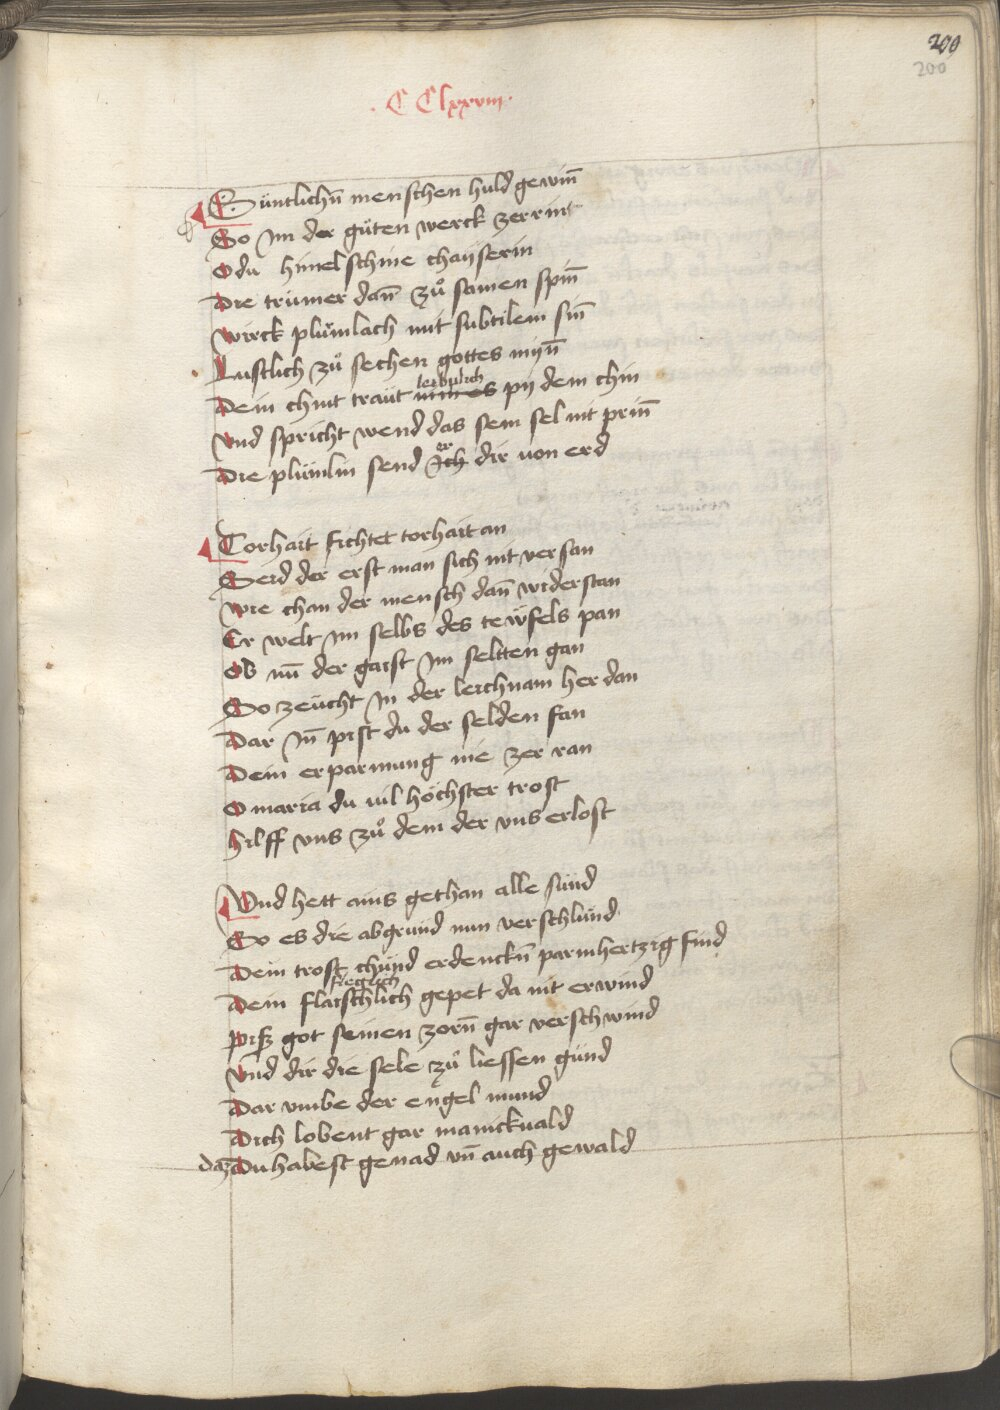 209
200
. C Clxxviii .
Süntlichn̄ menschen huld gewin̄
So im der güten werck zerrint
O du himel schine chayserin
Die trümer dan̄ zů samen spin̄
Wirck plůmlach mit subtilem sin̄
Lustlich zů sechen gottes myn̄
leiblich
Dein chint traüt nim es pij dem chin
Vnd spricht wend das sein sel nit prin̄
er
Die plümlin send ich dir von erd
Torhait fichtet torhait an
Seid der erst man sich nit versan
Wie chan der mensch dan̄ widerstan
Er welt im selbs des tewfels pan
Ob nu̅ der gaist im seltten gan
So zeücht in der leichnam her dan
Dar in̄ pist du der selden fan
Dein erparmung nie zer ran
O maria du vil höchster trost
Hilff vns zů dem der vns erlost
Vnd hett ains gethan alle sünd
So es die abgrund nun verschlünd
Dein trost chünd erdenckn̄ parmhertzig find
fleglich
Dein flaischlich gepet da nit erwind
Pis got seinen zorn̄ gar verschwind
Vnd dir die sele zů liessen günd
Dar vmbe der engel mund
Dich lobent gar manickuald
daz Du habest genad vn̄ auch gewald